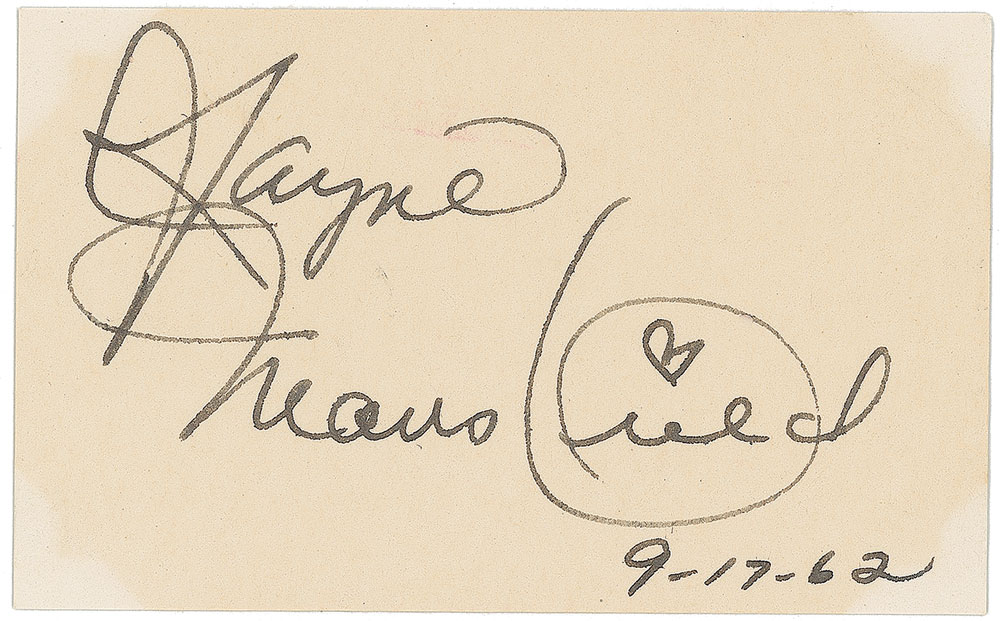 Jayne
Mansfield
9-17-62